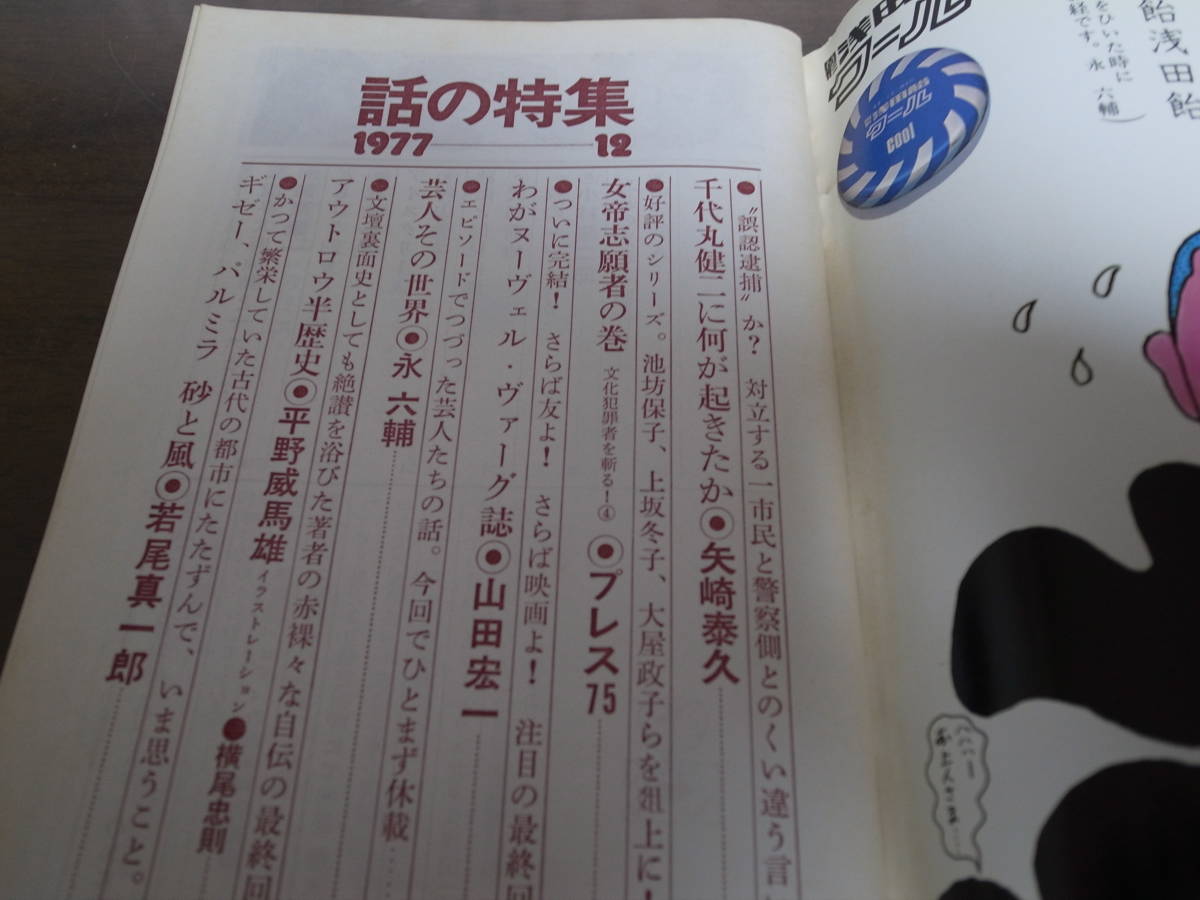 話の特集
1977 12
●〝誤認逮捕〟か? 対立する一市民と警察側とのくい違う言
千代丸健二に何が起きたか◉矢崎泰久
●好評のシリーズ。池坊保子、上坂冬子、大屋政子らを俎上に!
女帝志願者の巻 文化犯罪者を斬る!④ ◉プレス75
●ついに完結! さらば友よ! さらば映画よ! 注目の最終回
わがヌーヴェル・ヴァーグ誌◉山田宏一
●エピソードでつづった芸人たちの話。今回でひとまず休載
芸人その世界◉永 六輔
●文壇裏面史としても絶讃を浴びた著者の赤裸々な自伝の最終回
アウトロウ半歴史◉平野威馬雄 イラストレーション●横尾忠則
●かつて繁栄していた古代の都市にたたずんで、いま思うこと。
ギゼー、パルミラ 砂と風◉若尾真一郎
飴浅田飴
をひいた時に
経です。永 六輔)
クール
クール
cool
ハハハー